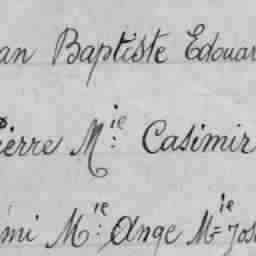 an Baptiste Edouar
ierre M.ie Casimir
mi M.ie Ange M.ie Jos